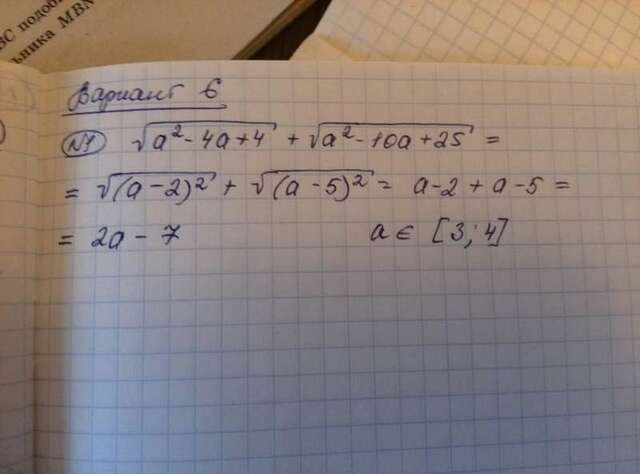 ВС подоб
ьника МВК
Вариант 6
№1 √(a² - 4a + 4) + √(a² - 10a + 25) =
= √(a - 2)² + √(a - 5)² = a - 2 + a - 5 =
= 2a - 7 a ∈ [3; 4]